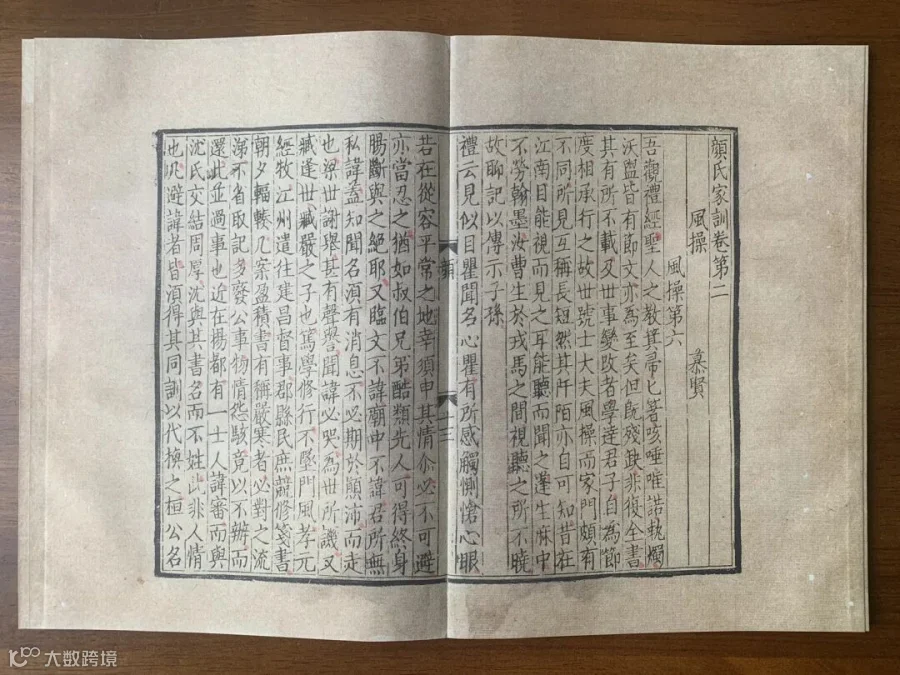 顏氏家訓卷第二
風操 慕賢
風操第六
吾觀禮經聖人之教箕帚匕箸咳唾唯諾執燭
沃盥皆有節文亦為至矣但旣殘缺非復全書
其有所不載及世事變改者學達君子自為節
度相承行之故世號士大夫風操而家門頗有
不同所見互稱長短然其阡陌亦自可知昔在
江南目能視而見之耳能聽而聞之蓬生麻中
不勞翰墨汝曹生於戎馬之間視聽之所不曉
故聊記以傳示子孫
禮云見似目瞿聞名心瞿有所感觸惻愴心眼
若在從容平常之地幸須申其情尒必不可避
亦當忍之猶如叔伯兄弟酷類先人可得終身
腸斷與之絕耶又臨文不諱廟中不諱君所無
私諱蓋知聞名須有消息不必期於顚沛而走
也梁世謝舉甚有聲譽聞諱必哭為世所譏又
臧逢世臧嚴之子也篤學修行不墜門風孝元
經牧江州遣往建昌督事郡縣民庶競修箋書
朝夕輻輳几案盈積書有稱嚴寒者必對之流
涕不省取記多廢公事物情怨駭竟以不辦而
還此並過事也近在揚都有一士人諱審而與
沈氏交結周厚沈與其書名而不姓此非人情
也凡避諱者皆須得其同訓以代換之桓公名
十三
大数跨境